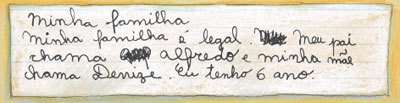 Minha familha
minha familha é legal. Meu pai
chama Alfredo e minha mãe
chama Denize. Eu tenho 6 ano.